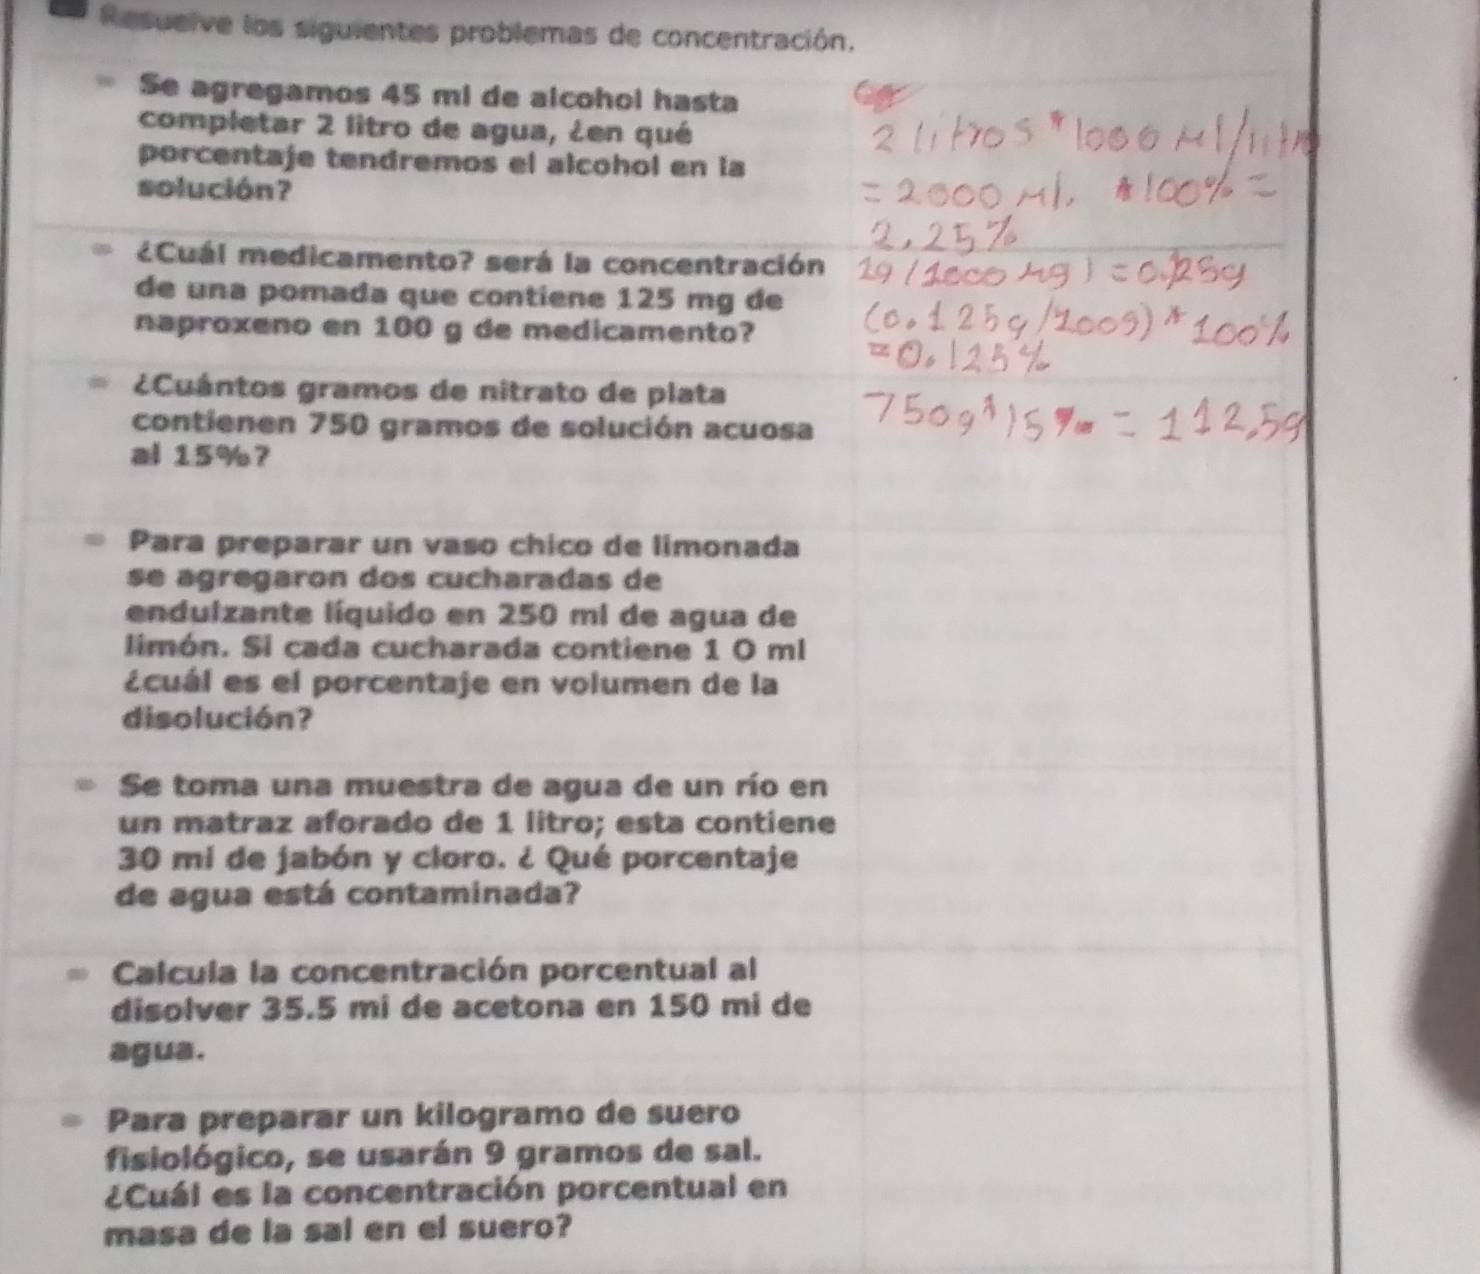 Resuelve los siguientes problemas de concentración.
Se agregamos 45 ml de alcohol hasta
completar 2 litro de agua, ¿en qué
porcentaje tendremos el alcohol en la
solución?
2 litros * 1000 Ml/litro
= 2000 Ml. * 100% =
2.25%
¿Cuál medicamento? será la concentración
de una pomada que contiene 125 mg de
naproxeno en 100 g de medicamento?
1g (1000 Mg) = 0.125g
(0.125g/100g) * 100%
= 0.125%
¿Cuántos gramos de nitrato de plata
contienen 750 gramos de solución acuosa
al 15%?
750g * 15% = 112,5g
Para preparar un vaso chico de limonada
se agregaron dos cucharadas de
endulzante líquido en 250 ml de agua de
limón. Si cada cucharada contiene 1 0 ml
¿cuál es el porcentaje en volumen de la
disolución?
Se toma una muestra de agua de un río en
un matraz aforado de 1 litro; esta contiene
30 ml de jabón y cloro. ¿ Qué porcentaje
de agua está contaminada?
Calcula la concentración porcentual al
disolver 35.5 ml de acetona en 150 ml de
agua.
Para preparar un kilogramo de suero
fisiológico, se usarán 9 gramos de sal.
¿Cuál es la concentración porcentual en
masa de la sal en el suero?